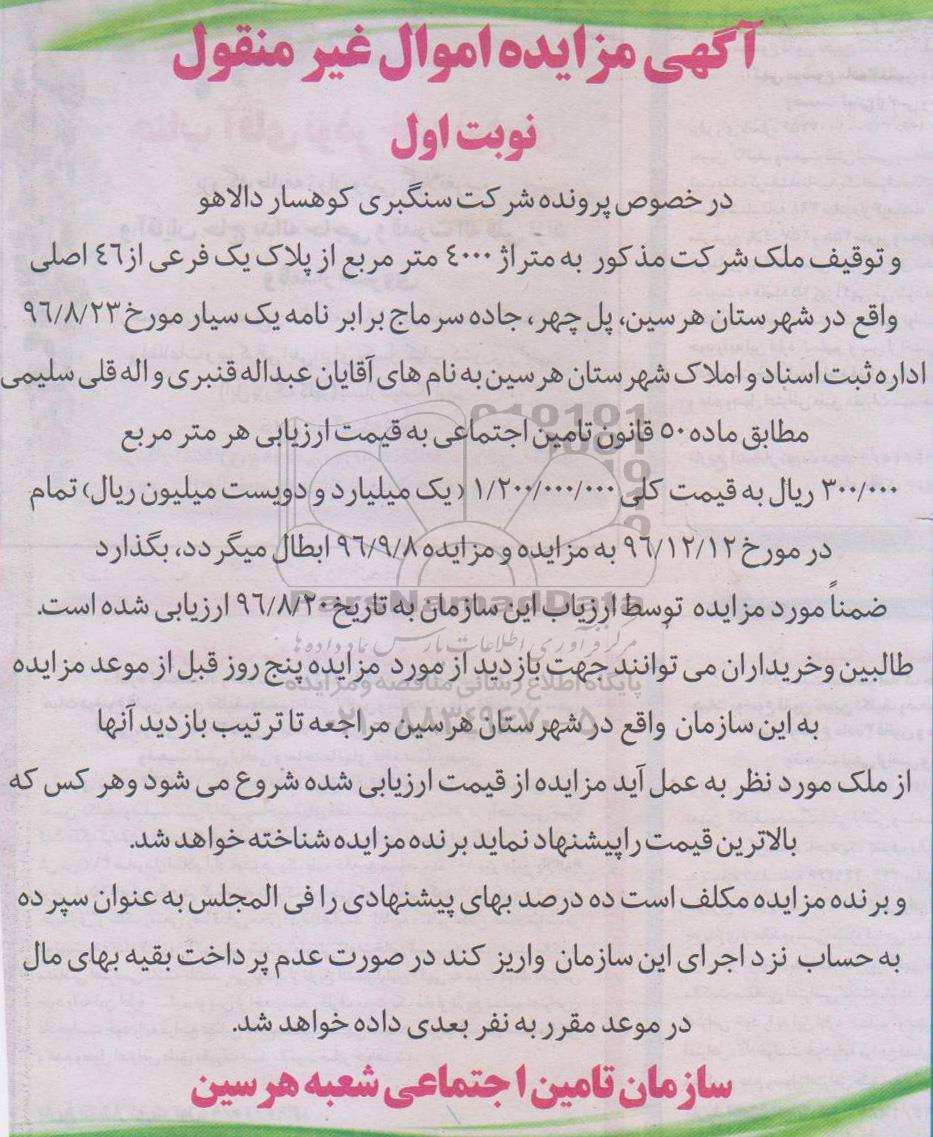 آگهی مزایده اموال غیر منقول
نوبت اول
در خصوص پرونده شرکت سنگبری کوهسار دالاهو
و توقیف ملک شرکت مذکور به متراژ ۴۰۰۰ متر مربع از پلاک یک فرعی از ۴۶ اصلی
واقع در شهرستان هرسین، پل چهر، جاده سرماج برابر نامه یک سیار مورخ ۹۶/۸/۲۳
اداره ثبت اسناد و املاک شهرستان هرسین به نام های آقایان عبداله قنبری و اله قلی سلیمی
مطابق ماده ۵۰ قانون تامین اجتماعی به قیمت ارزیابی هر متر مربع
۳۰۰/۰۰۰ ریال به قیمت کلی ۱/۲۰۰/۰۰۰/۰۰۰ (یک میلیارد و دویست میلیون ریال) تمام
در مورخ ۹۶/۱۲/۱۲ به مزایده و مزایده ۹۶/۹/۸ ابطال میگردد، بگذارد
ضمناً مورد مزایده توسط ارزیاب این سازمان به تاریخ ۹۶/۸/۲۰ ارزیابی شده است.
طالبین وخریداران می توانند جهت بازدید از مورد مزایده پنج روز قبل از موعد مزایده
به این سازمان واقع در شهرستان هرسین مراجعه تا ترتیب بازدید آنها
از ملک مورد نظر به عمل آید مزایده از قیمت ارزیابی شده شروع می شود وهر کس که
بالاترین قیمت را پیشنهاد نماید برنده مزایده شناخته خواهد شد.
و برنده مزایده مکلف است ده درصد بهای پیشنهادی را فی المجلس به عنوان سپرده
به حساب نزد اجرای این سازمان واریز کند در صورت عدم پرداخت بقیه بهای مال
در موعد مقرر به نفر بعدی داده خواهد شد.
سازمان تامین اجتماعی شعبه هرسین
ParsNamadData
مرکز فرآوری اطلاعات پارس نماد داده ها
پایگاه اطلاع رسانی مناقصه و مزایده